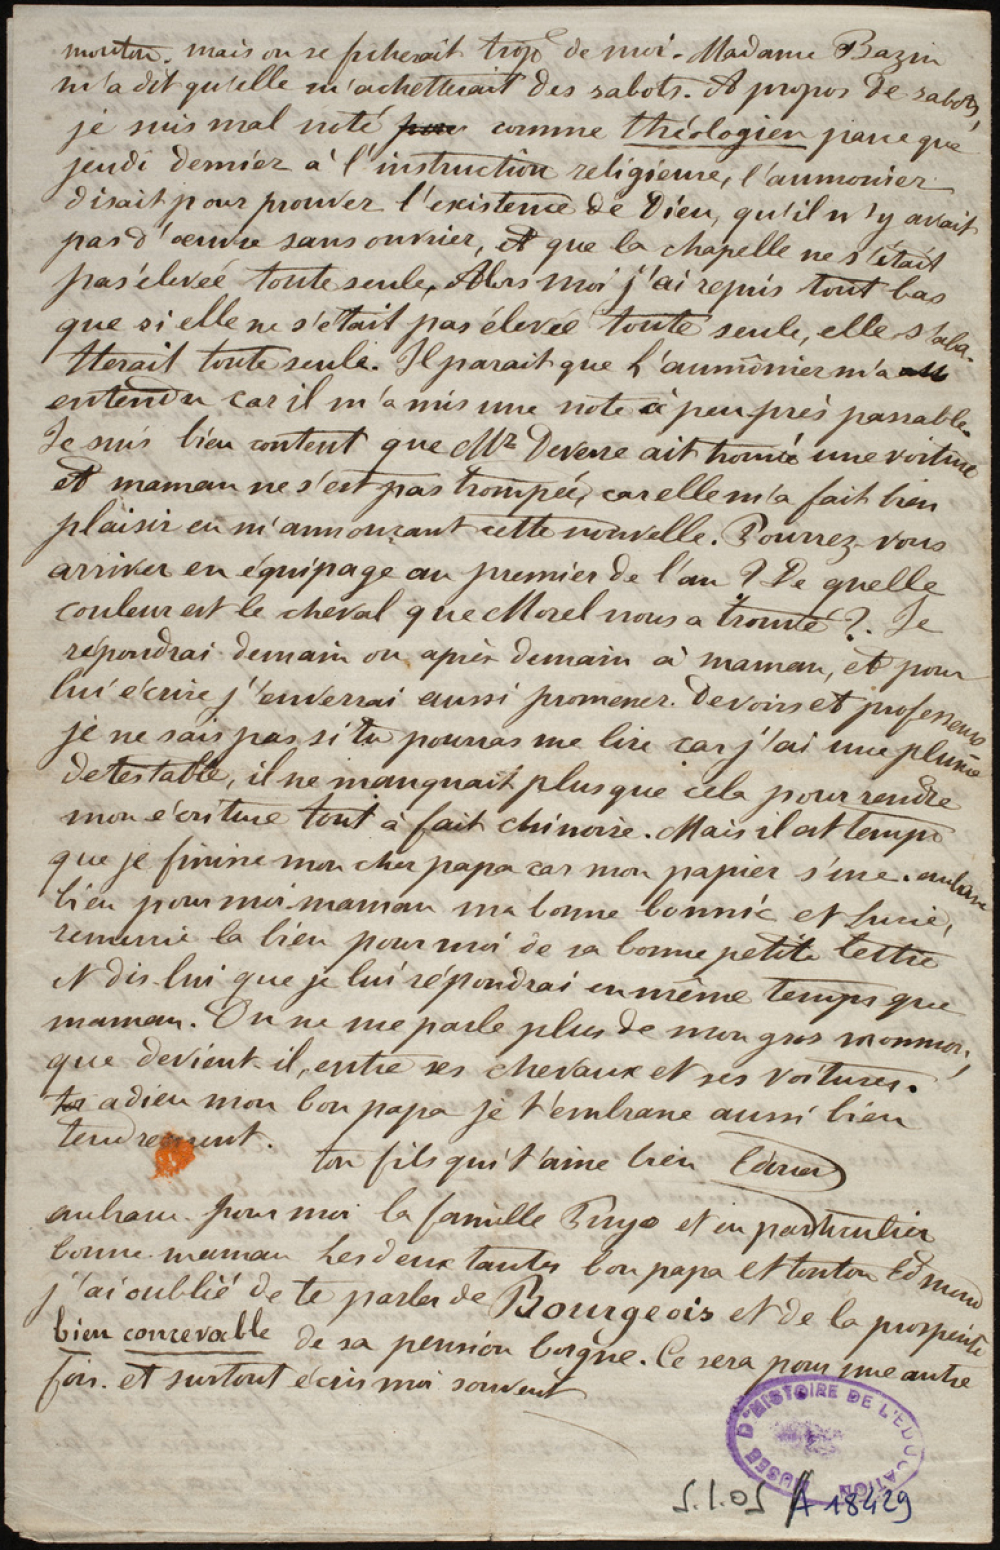 mouton. mais on se ficherait trop de moi. Madame Bazin
m'a dit qu'elle m'achetterait des sabots. A propos de sabots,
je suis mal noté comme théologien parceque
jeudi dernier à l'instruction religieuse, l'aumonier
disait pour prouver l'existence de Dieu, qu'il n'y avait
pas d'oeuvre sans ouvrier, et que la chapelle ne s'était
pas élevée toute seule, Alors moi j'ai repris tout bas
que si elle ne s'était pas élevée toute seule, elle s'aba-
tterait toute seule. Il parait que l'aumônier m'a
entendu car il m'a mis une note à peu près passable.
Je suis bien content que Mr Deverre ait trouvé une voiture
et maman ne s'est pas trompée, car elle m'a fait bien
plaisir en m'annonçant cette nouvelle. Pourrez-vous
arriver en équipage au premier de l'an ? De quelle
couleur est le cheval que Morel nous a trouvé ?. Je
répondrai demain ou après demain à maman, et pour
lui écrire j'enverrai aussi promener devoirs et professeurs
je ne sais pas si tu pourras me lire car j'ai une plume
detestable, il ne manquait plus que cela pour rendre
mon écriture tout à fait chinoise. Mais il est temps
que je finisse mon cher papa car mon papier s'use. embrasse
bien pour moi maman ma bonne bonnic et Lucie,
remercie la bien pour moi de sa bonne petite lettre
et dis-lui que je lui répondrai en même temps que
maman. On ne me parle plus de mon gros
que devient-il, entre ses chevaux et ses voitures.
adieu mon bon papa je t'embrasse aussi bien
tendrement.
ton fils qui t'aime bien
embrasse pour moi la famille Puyo et en particulier
bonne maman Les deux tantes bon papa et tonton Edmond
j'ai oublié de te parler de Bourgeois et de la prospérité
bien concevable de sa pension borgne. Ce sera pour une autre
fois. et surtout écris moi souvent
MUSEE D'HISTOIRE DE L'EDUCATION
5.1.05 A 18429